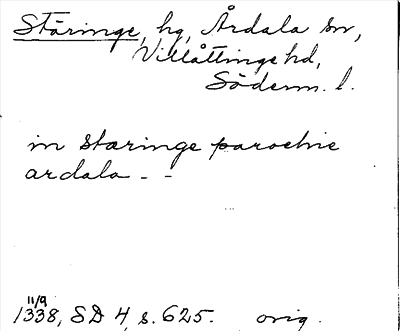 Stäringe, hg, Årdala sn,
Villåttinge hd,
Söderm. l.
in stæringe parochie
ardala - -
11/9
1338, SD 4, s. 625. orig.